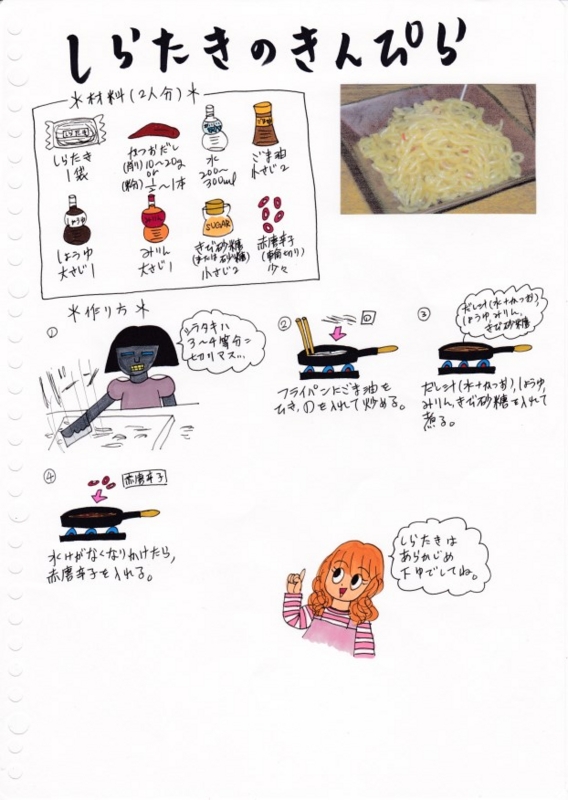 しらたきのきんぴら
*材料(2人分)*
しらたき
しらたき
1袋
かつおだし
(削り)10〜20g
or
(粉)1/2〜1本
水
200〜
300ml
ごま油
小さじ2
しょうゆ
しょうゆ
大さじ1
みりん
大さじ1
SUGAR
きび砂糖
(または砂糖)
小さじ2
赤唐辛子
(輪切り)
少々
*作り方*
①
シラタキハ
3〜4等分ニ
切リマス…
②
①
フライパンにごま油を
ひき、①を入れて炒める。
③
だし汁(水+かつお)
しょうゆ、みりん、
きび砂糖
だし汁(水+かつお)、しょうゆ、
みりん、きび砂糖を入れて
煮る。
④
赤唐辛子
水けがなくなりかけたら、
赤唐辛子を入れる。
しらたきは
あらかじめ
下ゆでしてね。